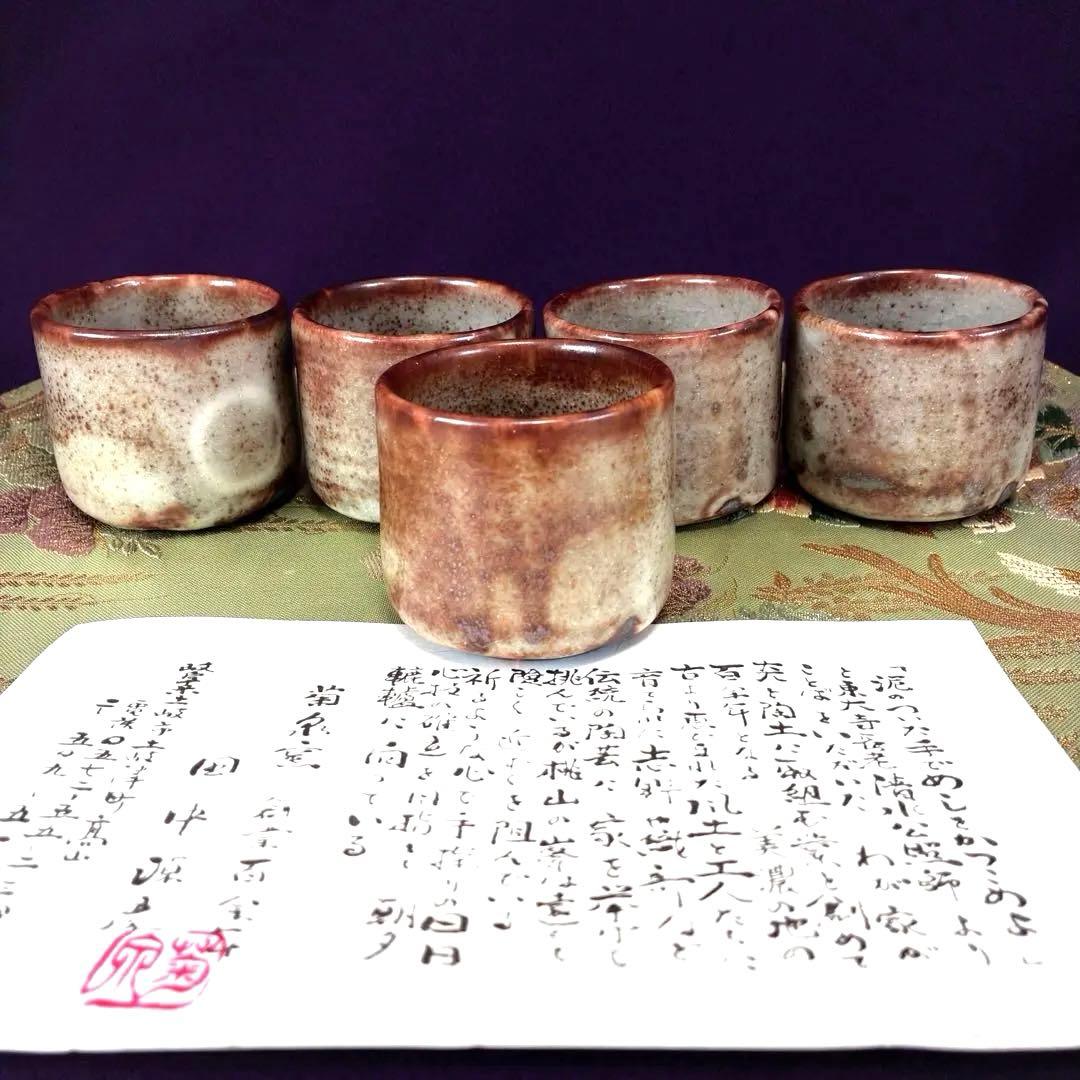 「泥のついた手でめしをかつこめよ」
と東大寺長老清水公照師より
ことばをいただいた わが家が
先と陶土に取組む業を創めて
百余年となる 美濃の地の
古より恵まれた風土と工人たちに
育くまれた志野や織部など
伝統の陶芸に家を挙げて
挑んでいるが桃山の峯は遠く
険しく近づくを阻んでいる
祈るような心で手捻りの白日
心技の確立を目指して朝夕
轆轤に向っている
菊泉窯
創業百余年
田中源
岐阜県土岐市土岐津町高山
電話〇五七二-五五-二三